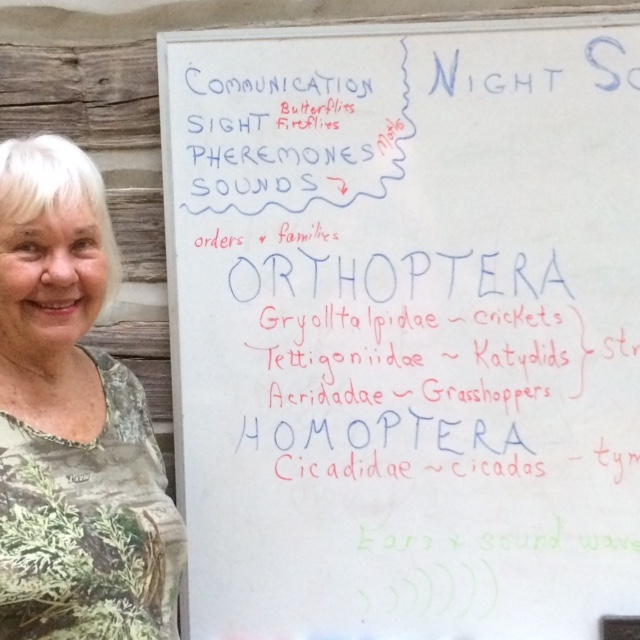 COMMUNICATION
SIGHT Butterflies
Fireflies
PHEREMONES Moths
SOUNDS
NIGHT SO
orders + families
ORTHOPTERA
Gryolltalpidae ~ crickets
Tettigoniidae ~ Katydids
Acridadae ~ Grasshoppers
Str
HOMOPTERA
Cicadidae ~ cicadas - tym
Ears + sound wave